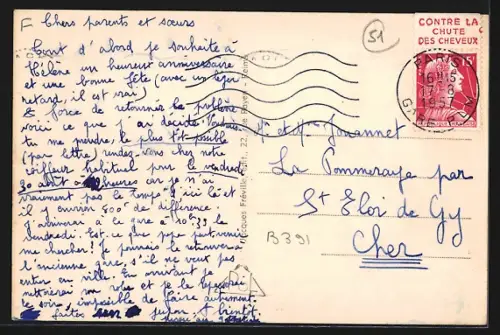 F Chers parents et sœurs
Tout d'abord je souhaite à
Hélène un heureux anniversaire
et une bonne fête (avec un léger
retard, il est vrai)
à force de retourner le problème
voici ce que j'ai décidé. Voudrais-
tu me prendre, le plus tôt possible
(par lettre) rendez-vous chez notre
coiffeur habituel pour le vendredi
30 août à heures car je n'ai
vraiment pas le temps d'ici là et
il y environ 800 de différence.
J'arriverai à la gare à le
vendredi. Est-ce que papa peut venir
me chercher? Je pourrais le retrouver à
l'ancienne gare, s'il ne veut pas
entrer en ville. En arrivant je
nettoierai ma robe et je la repasserai
le soir, impossible de faire autrement.
faites bientôt
51
CONTRE LA
CHUTE
DES CHEVEUX
PARIS
16H15
17-8
1957
GARE
15F
Mr et Mme Jouannet
La Pommeraye par
St Eloi de Gy
Cher
B391